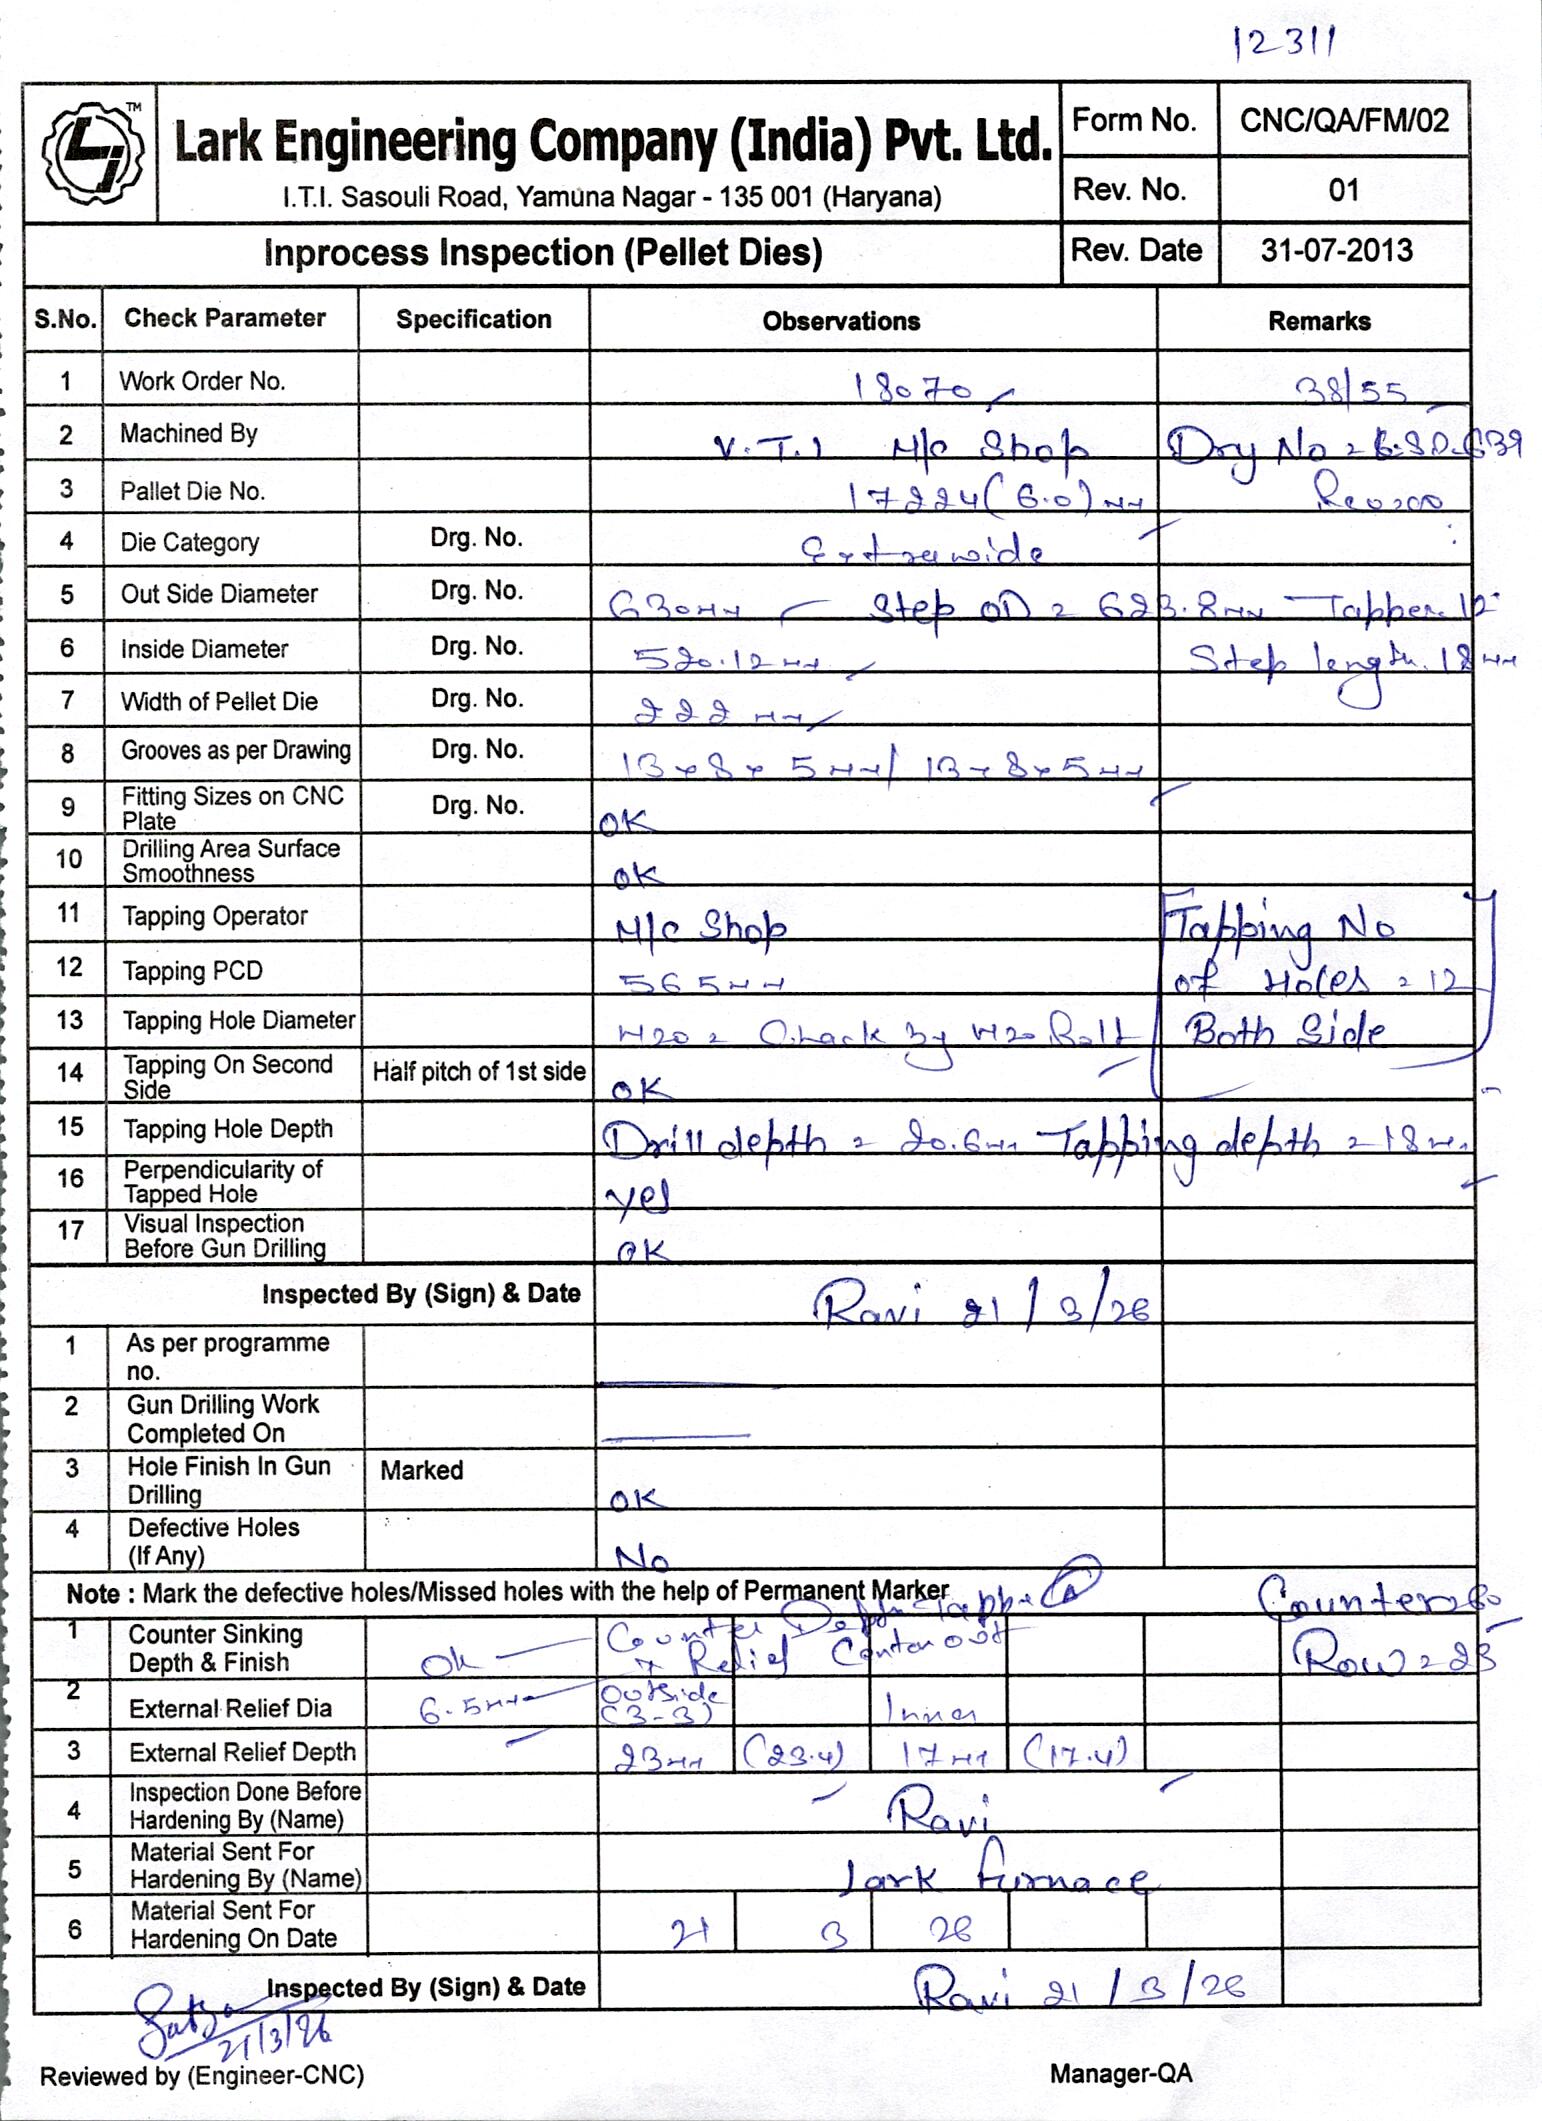 12311
TM
Lark Engineering Company (India) Pvt. Ltd.
I.T.I. Sasouli Road, Yamuna Nagar - 135 001 (Haryana)
Form No. CNC/QA/FM/02
Rev. No. 01
Inprocess Inspection (Pellet Dies) Rev. Date 31-07-2013
S.No. Check Parameter Specification Observations Remarks
1 Work Order No. 18070 38/55
2 Machined By V.T.I M/c Shop Dry No =
3 Pallet Die No. 17224(6.0)mm
4 Die Category Drg. No. Extrawide
5 Out Side Diameter Drg. No. 630mm Step OD = 623.8mm Tapper. 12°
6 Inside Diameter Drg. No. 520.12mm Step length. 18mm
7 Width of Pellet Die Drg. No. 222mm
8 Grooves as per Drawing Drg. No. 13x8x5mm/ 13x8x5mm
9 Fitting Sizes on CNC Plate Drg. No. OK
10 Drilling Area Surface Smoothness OK
11 Tapping Operator M/c Shop Tapping No
12 Tapping PCD 565mm of Holes = 12
13 Tapping Hole Diameter M20 = Chack By M20 Bolt Both Side
14 Tapping On Second Side Half pitch of 1st side OK
15 Tapping Hole Depth Drill depth = 20.6mm Tapping depth = 18mm
16 Perpendicularity of Tapped Hole yes
17 Visual Inspection Before Gun Drilling OK
Inspected By (Sign) & Date Ravi 21/3/26
1 As per programme no.
2 Gun Drilling Work Completed On
3 Hole Finish In Gun Drilling Marked OK
4 Defective Holes (If Any) No
Note : Mark the defective holes/Missed holes with the help of Permanent Marker
1 Counter Sinking Depth & Finish Ok Counter Depth Relief Row = 23
2 External Relief Dia 6.5mm Outside (3-3) Inner
3 External Relief Depth 23mm (23.4) 17mm (17.4)
4 Inspection Done Before Hardening By (Name) Ravi
5 Material Sent For Hardening By (Name) Lark furnace
6 Material Sent For Hardening On Date 21 3 26
Inspected By (Sign) & Date Ravi 21/3/26
21/3/26
Reviewed by (Engineer-CNC) Manager-QA